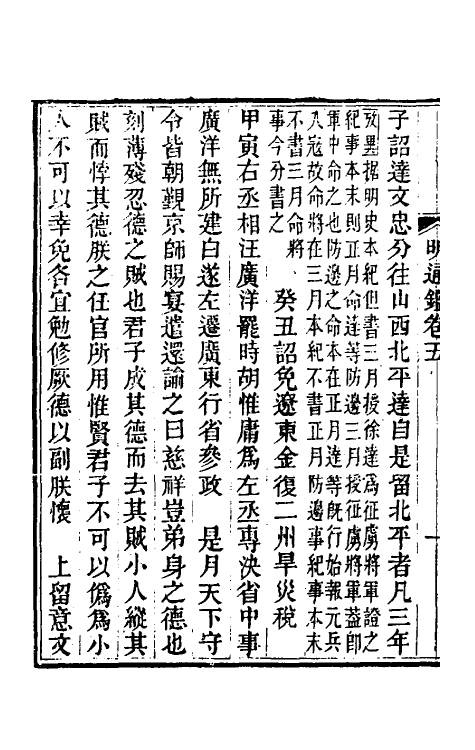 明通鑑卷五
一
子詔達文忠分往山西北平達自是留北平者凡三年
攷異据明史本紀但書三月授徐達爲征虜將軍證之
紀事本末則正月命達等防邊三月授征虜將軍蓋卽
軍中命之也防邊之命本在正月達等旣行始報元兵
入寇故命將在三月本紀不書正月防邊事紀事本末
不書三月命將
事今分書之
癸丑詔免遼東金復二州旱災稅
甲寅右丞相汪廣洋罷時胡惟庸爲左丞專決省中事
廣洋無所建白遂左遷廣東行省參政　是月天下守
令皆朝觀京師賜宴遣還諭之曰慈祥豈弟身之德也
刻薄殘忍德之賊也君子成其德而去其賊小人縱其
賊而悖其德朕之任官所用惟賢君子不可以僞爲小
人不可以幸免各宜勉修厥德以副朕懷　上留意文